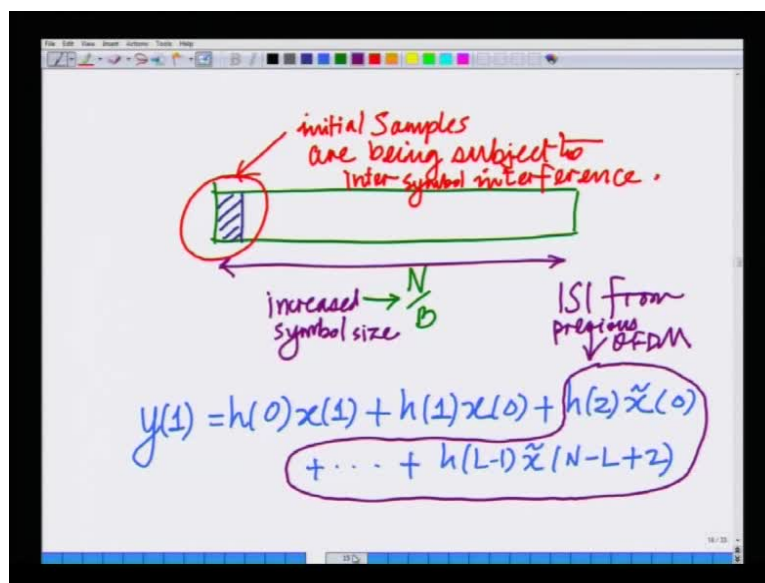 File Edit View Insert Actions Tools Help
initial Samples
are being subject to
inter symbol interference.
increased → N/B
symbol size
ISI from
previous
OFDM
y(1) = h(0)x(1) + h(1)x(0) + h(2)x̃(0)
+ ··· + h(L-1)x̃(N-L+2)